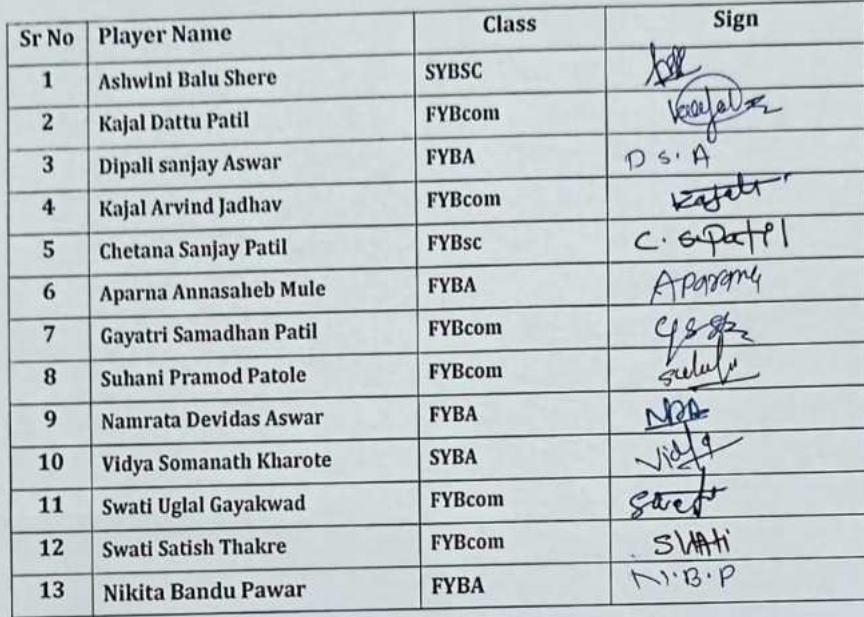 Sr No Player Name Class Sign
1 Ashwini Balu Shere SYBSC
2 Kajal Dattu Patil FYBcom Kaajal
3 Dipali sanjay Aswar FYBA D S. A
4 Kajal Arvind Jadhav FYBcom
5 Chetana Sanjay Patil FYBsc C. S. Patil
6 Aparna Annasaheb Mule FYBA
7 Gayatri Samadhan Patil FYBcom
8 Suhani Pramod Patole FYBcom
9 Namrata Devidas Aswar FYBA NDA
10 Vidya Somanath Kharote SYBA Vidya
11 Swati Uglal Gayakwad FYBcom
12 Swati Satish Thakre FYBcom SWAti
13 Nikita Bandu Pawar FYBA N.B.P